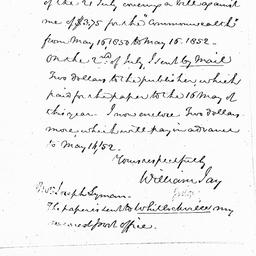 of the 21 July covering a bill against
me of $3.75 for the "Commonwealth"
from May 16, 1850 to May 16. 1852.
On the 2nd of July, I sent by Mail
Two dollars to the publisher which
paid for the paper to the 16 May of
this year. I now enclose Two dollars
more which will pay in advance
to May 16/52.
Yours respectfully
William Jay
Joseph Lyman.
The paper is sent to my
post office.